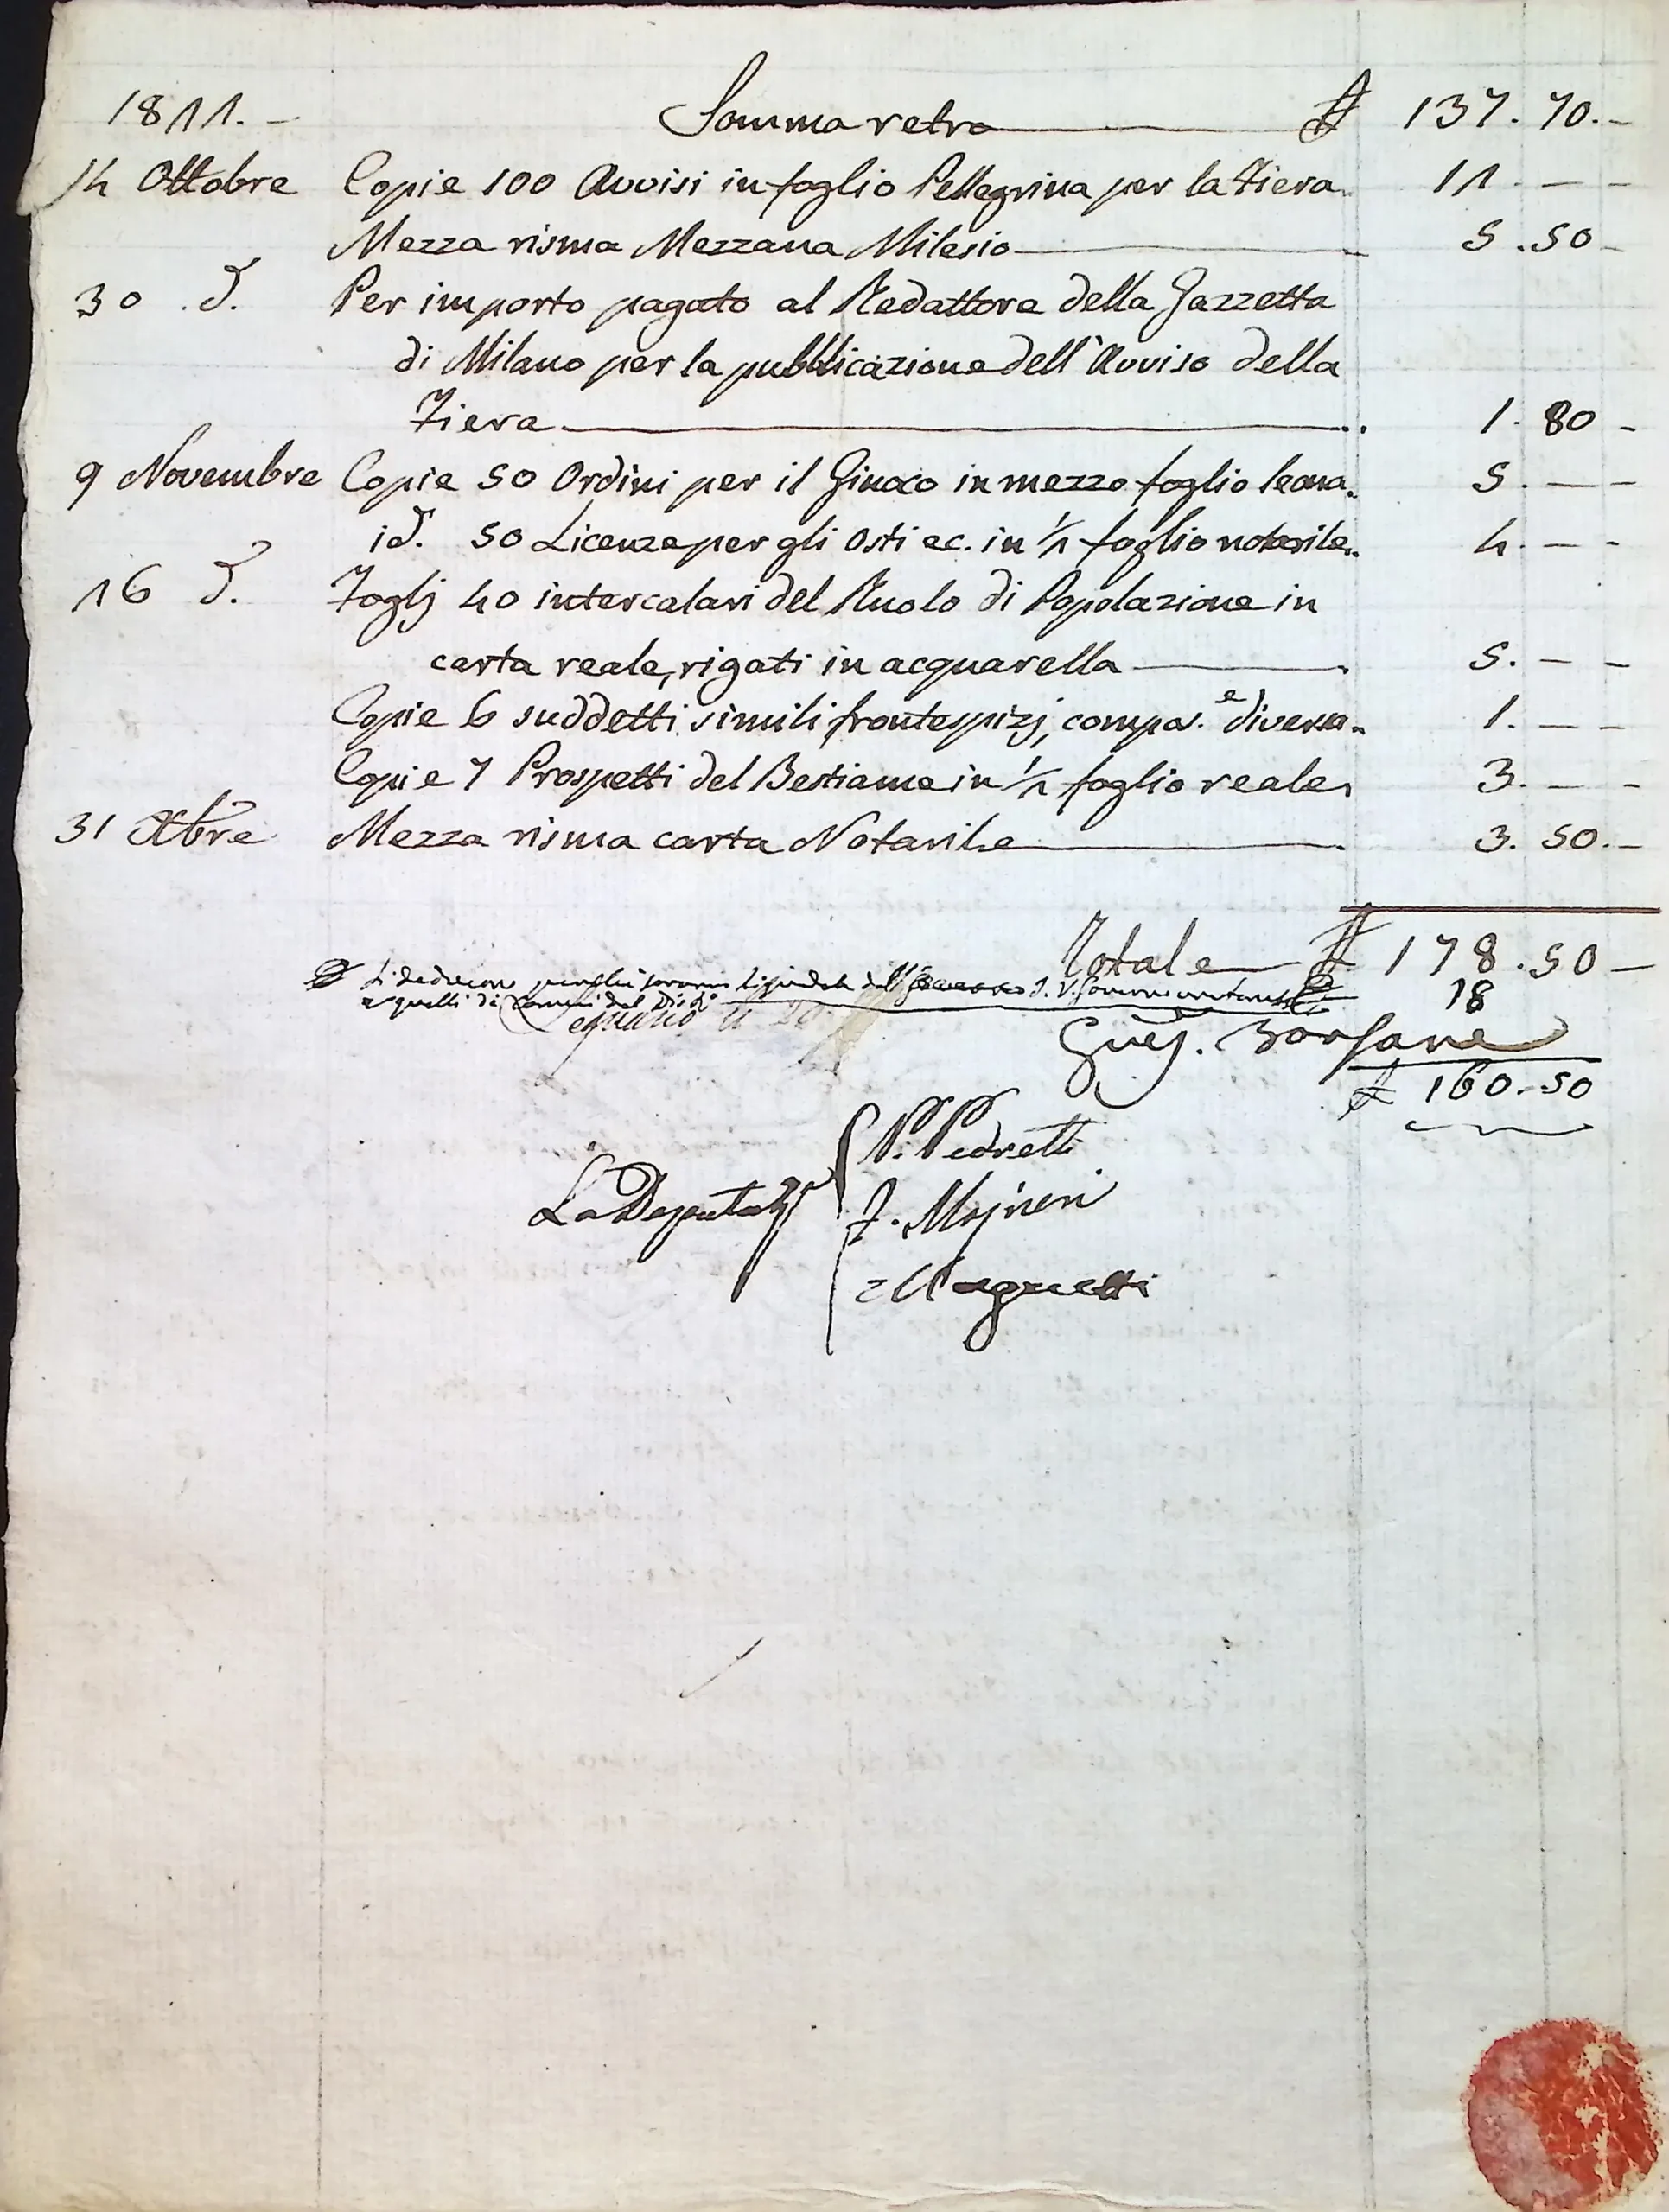 1811. - Somma retro 137. 70. -
14 Ottobre Copie 100 Avvisi in foglio Pellegrina per la Fiera. 11. - -
Mezza risma Mezzana Milesio 5. 50 -
30 d. Per importo pagato al Redattore della Gazzetta
di Milano per la pubblicazione dell'Avviso della
Fiera 1. 80 -
9 Novembre Copie 50 Ordini per il Giuoco in mezzo foglio leona. 5. - -
id. 50 Licenze per gli Osti ec. in 1/2 foglio notarile. 4. - -
16 d. Foglj 40 intercalari del Ruolo di Popolazione in
carta reale, rigati in acquarella 5. - -
Copie 6 suddetti simili frontespizj, compos.e diversa. 1. - -
Copie 7 Prospetti del Bestiame in 1/2 foglio reale 3. - -
31 Xbre Mezza risma carta Notarile 3. 50. -
Totale 178. 50 -
Si deducono 18
e quelli di
160. 50
P. Pedretti
La Deputaz.e
Magnetti